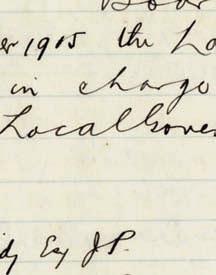 Boar
er 1905 the Lo
in charge
Local Gover
dy Esq J.P.